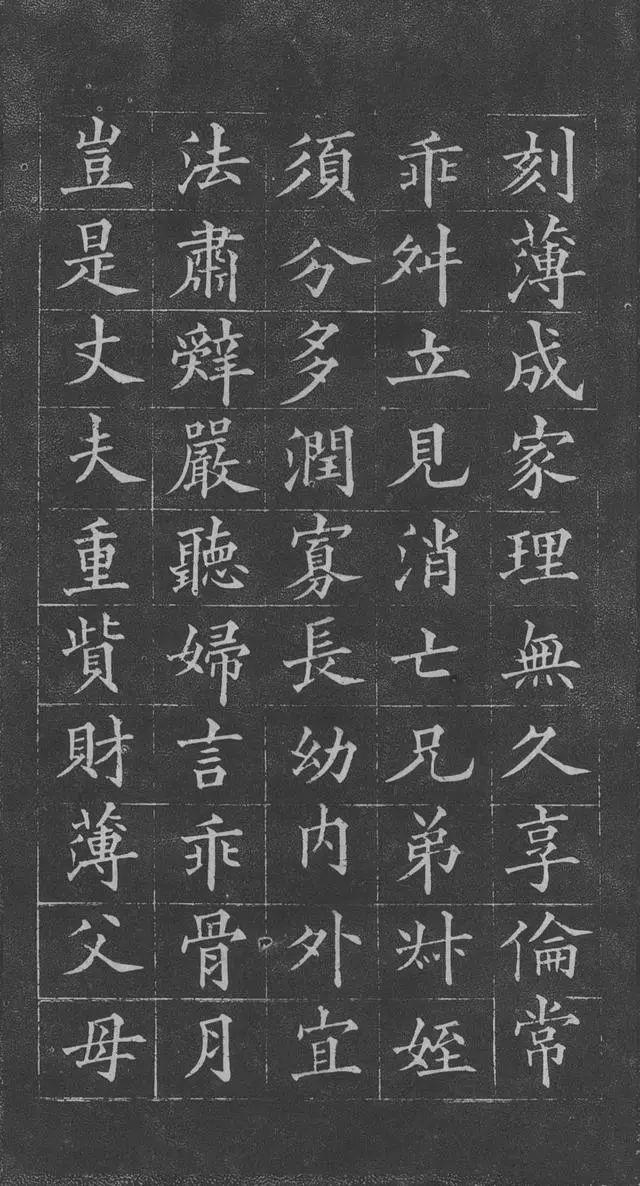 刻薄成家理無久享倫常
乖舛立見消亡兄弟叔姪
須分多潤寡長幼內外宜
法肅辭嚴聽婦言乖骨月
豈是丈夫重貲財薄父母